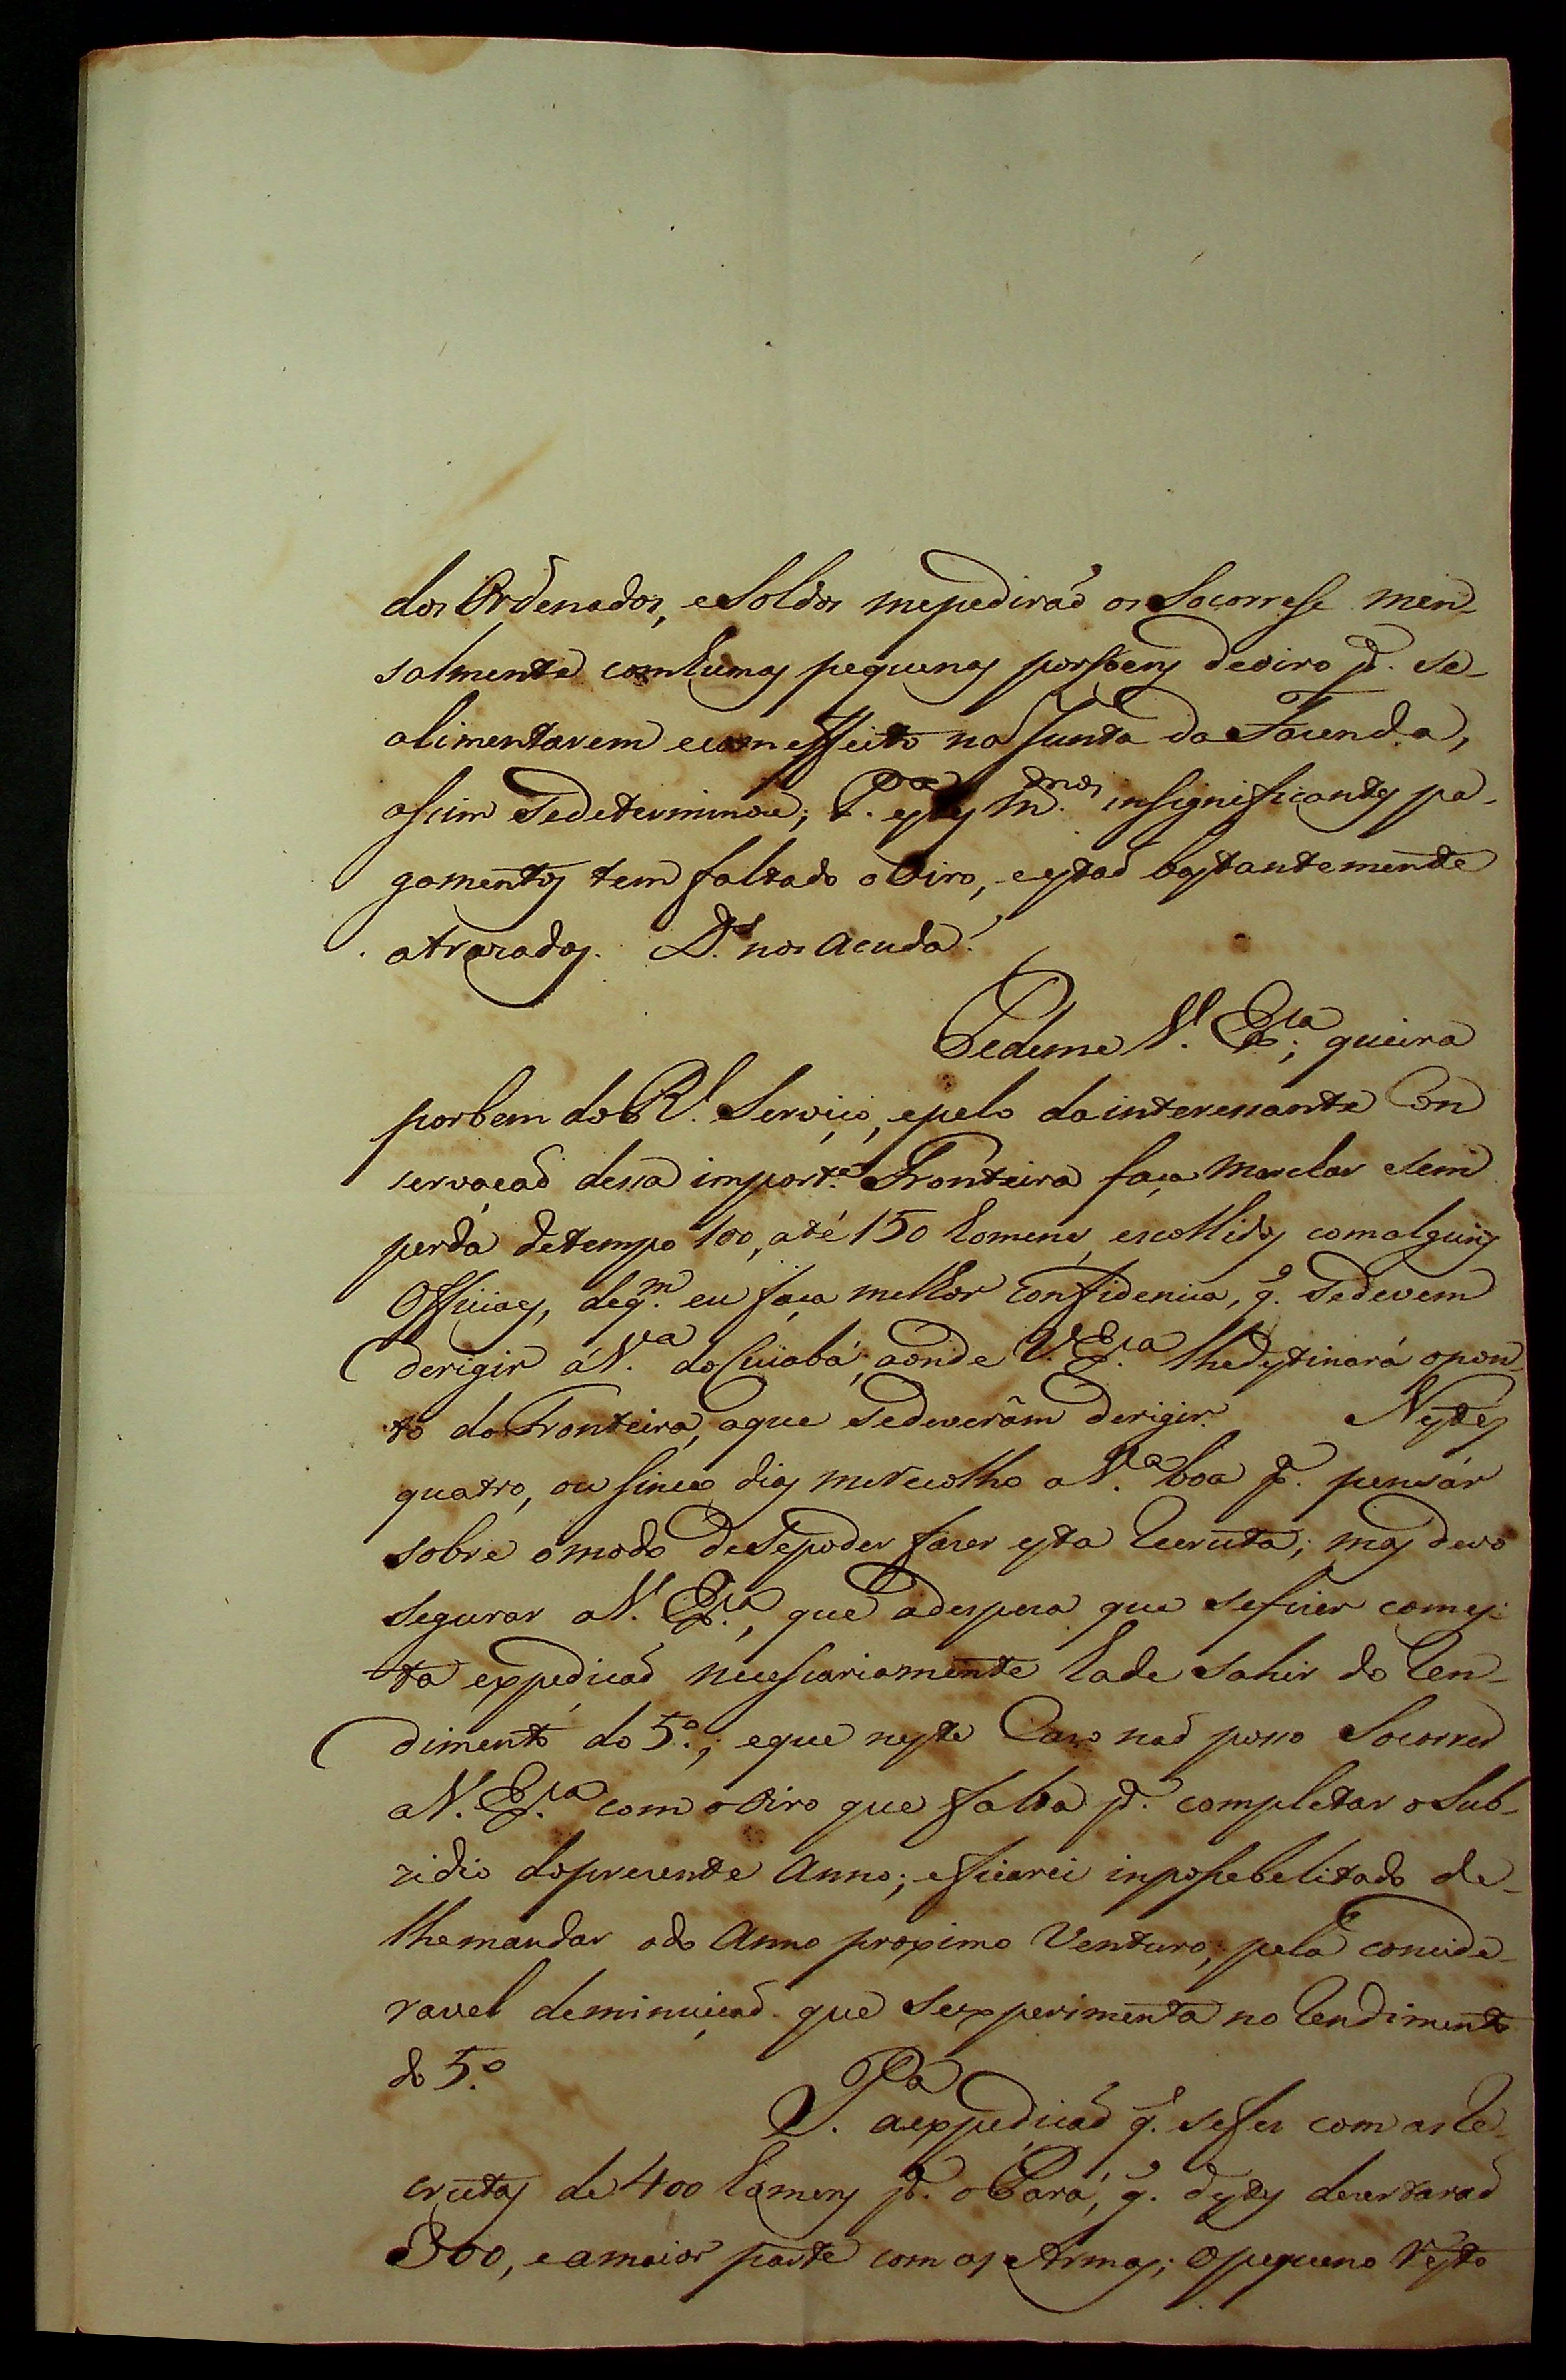 dos Ordenados, e Soldos mepediraõ os Socorrese men-
salmente com humas pequenas porsoens deoiro p.ª se-
alimentarem ecom effeito na Junta da Fazenda,
assim Sedeterminou; P.ª estes m.mos insignificantes pa-
gamentos tem faltado o Oiro, e estaõ bastantemente
atrazados. D.s nos acuda!
Pedeme V. Ex.ca; queira
porbem do R.l Serviço, epelo da interessante Con
servaçaõ dessa import.e Fronteira faça marchar sem
perda detempo 100, até 150 homens, escolhidos com alguns
Officiaes, deq.m eu faça melhor confidencia, q. Sedevem
derigir á V.a do Cuiabá, aonde V. Ex.ca lhedestinará opon-
to da Fronteira, aque Sedeverâm derigir. Nestes
quatro, ou sinco dias merecolho a V.a boa p.ª pensár
sobre omodo deSepoder fazer esta Recruta; mas devo
segurar a V. Ex.ca, que adespeza que sefizer com es-
ta expediçaõ necessariamente hade sahir do Ren-
dimento do 5.º; eque neste Cazo naõ posso Socorrer
a V. Ex.ca com o Oiro que falta p.ª completar o Sub-
zidio dopresente Anno; eficarei inpossebelitado de-
lhemandar odo Anno proximo Venturo, pela concide-
ravel deminuiçaõ que Sexperimenta no Rendimento
do 5.º
P.a aexpediçaõ q. sefes com as Re-
crutas de 400 homens p.ª o Pará, q. destes dezertaraõ
300, eamaior parte com as Armas; Opequeno resto